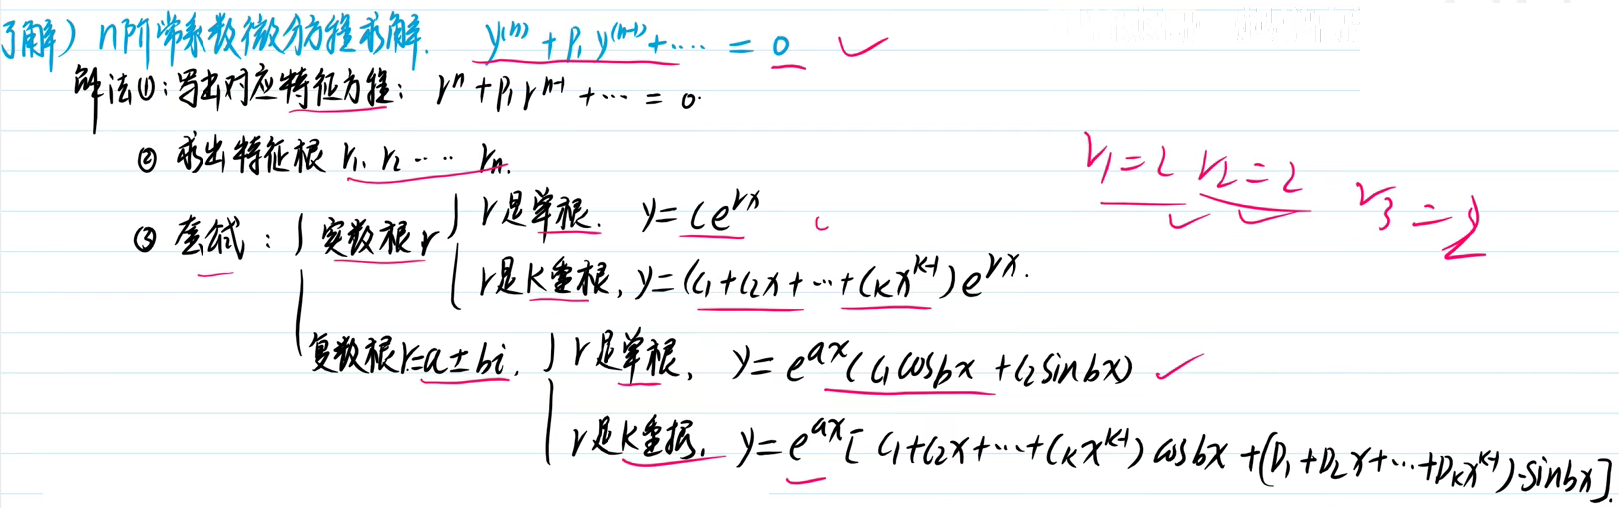 了解）n阶常系数微分方程求解. y⁽ⁿ⁾ + P₁ y⁽ⁿ⁻¹⁾ + ···· = 0 ✓
解法①:写出对应特征方程: rⁿ + P₁ rⁿ⁻¹ + ··· = 0.
② 求出特征根 r₁. r₂ ···· rₙ.
r₁=2 r₂=2 r₃=2
③ 套公式: { 实数根 r { r是单根. y = Ce^{rx}
r是K重根, y = (C₁+C₂x+···+Cₖx^{K-1}) e^{rx}.
复数根r=a±bi. { r是单根, y = e^{ax}(C₁cosbx + C₂sinbx) ✓
r是K重根. y = e^{ax}[ C₁+C₂x+···+Cₖx^{K-1}) cosbx + (D₁+D₂x+···+Dₖx^{K-1})·sinbx].